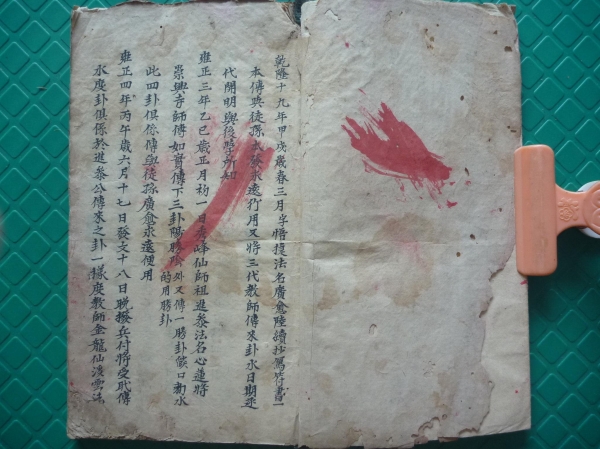 乾隆十九年甲戌歲春三月字悟復法名廣愈陸續抄寫符書一
本傳與徒孫 永遠行用又將三代教師傳來卦水日期逐
代開明與後學所知
雍正三年乙巳歲正月初一日 峰仙師祖進 法名心蓮將
崇興寺師傳如實傳下三卦賜勝陰外又傳一勝卦 口 水
的用勝卦
此四卦俱係傳與徒孫廣愈永遠使用
雍正四年丙午歲六月十七日發文十八日晚撥兵付將受職傳
水度卦俱係於進 公傳來之卦一樣度教師金龍仙 雲法